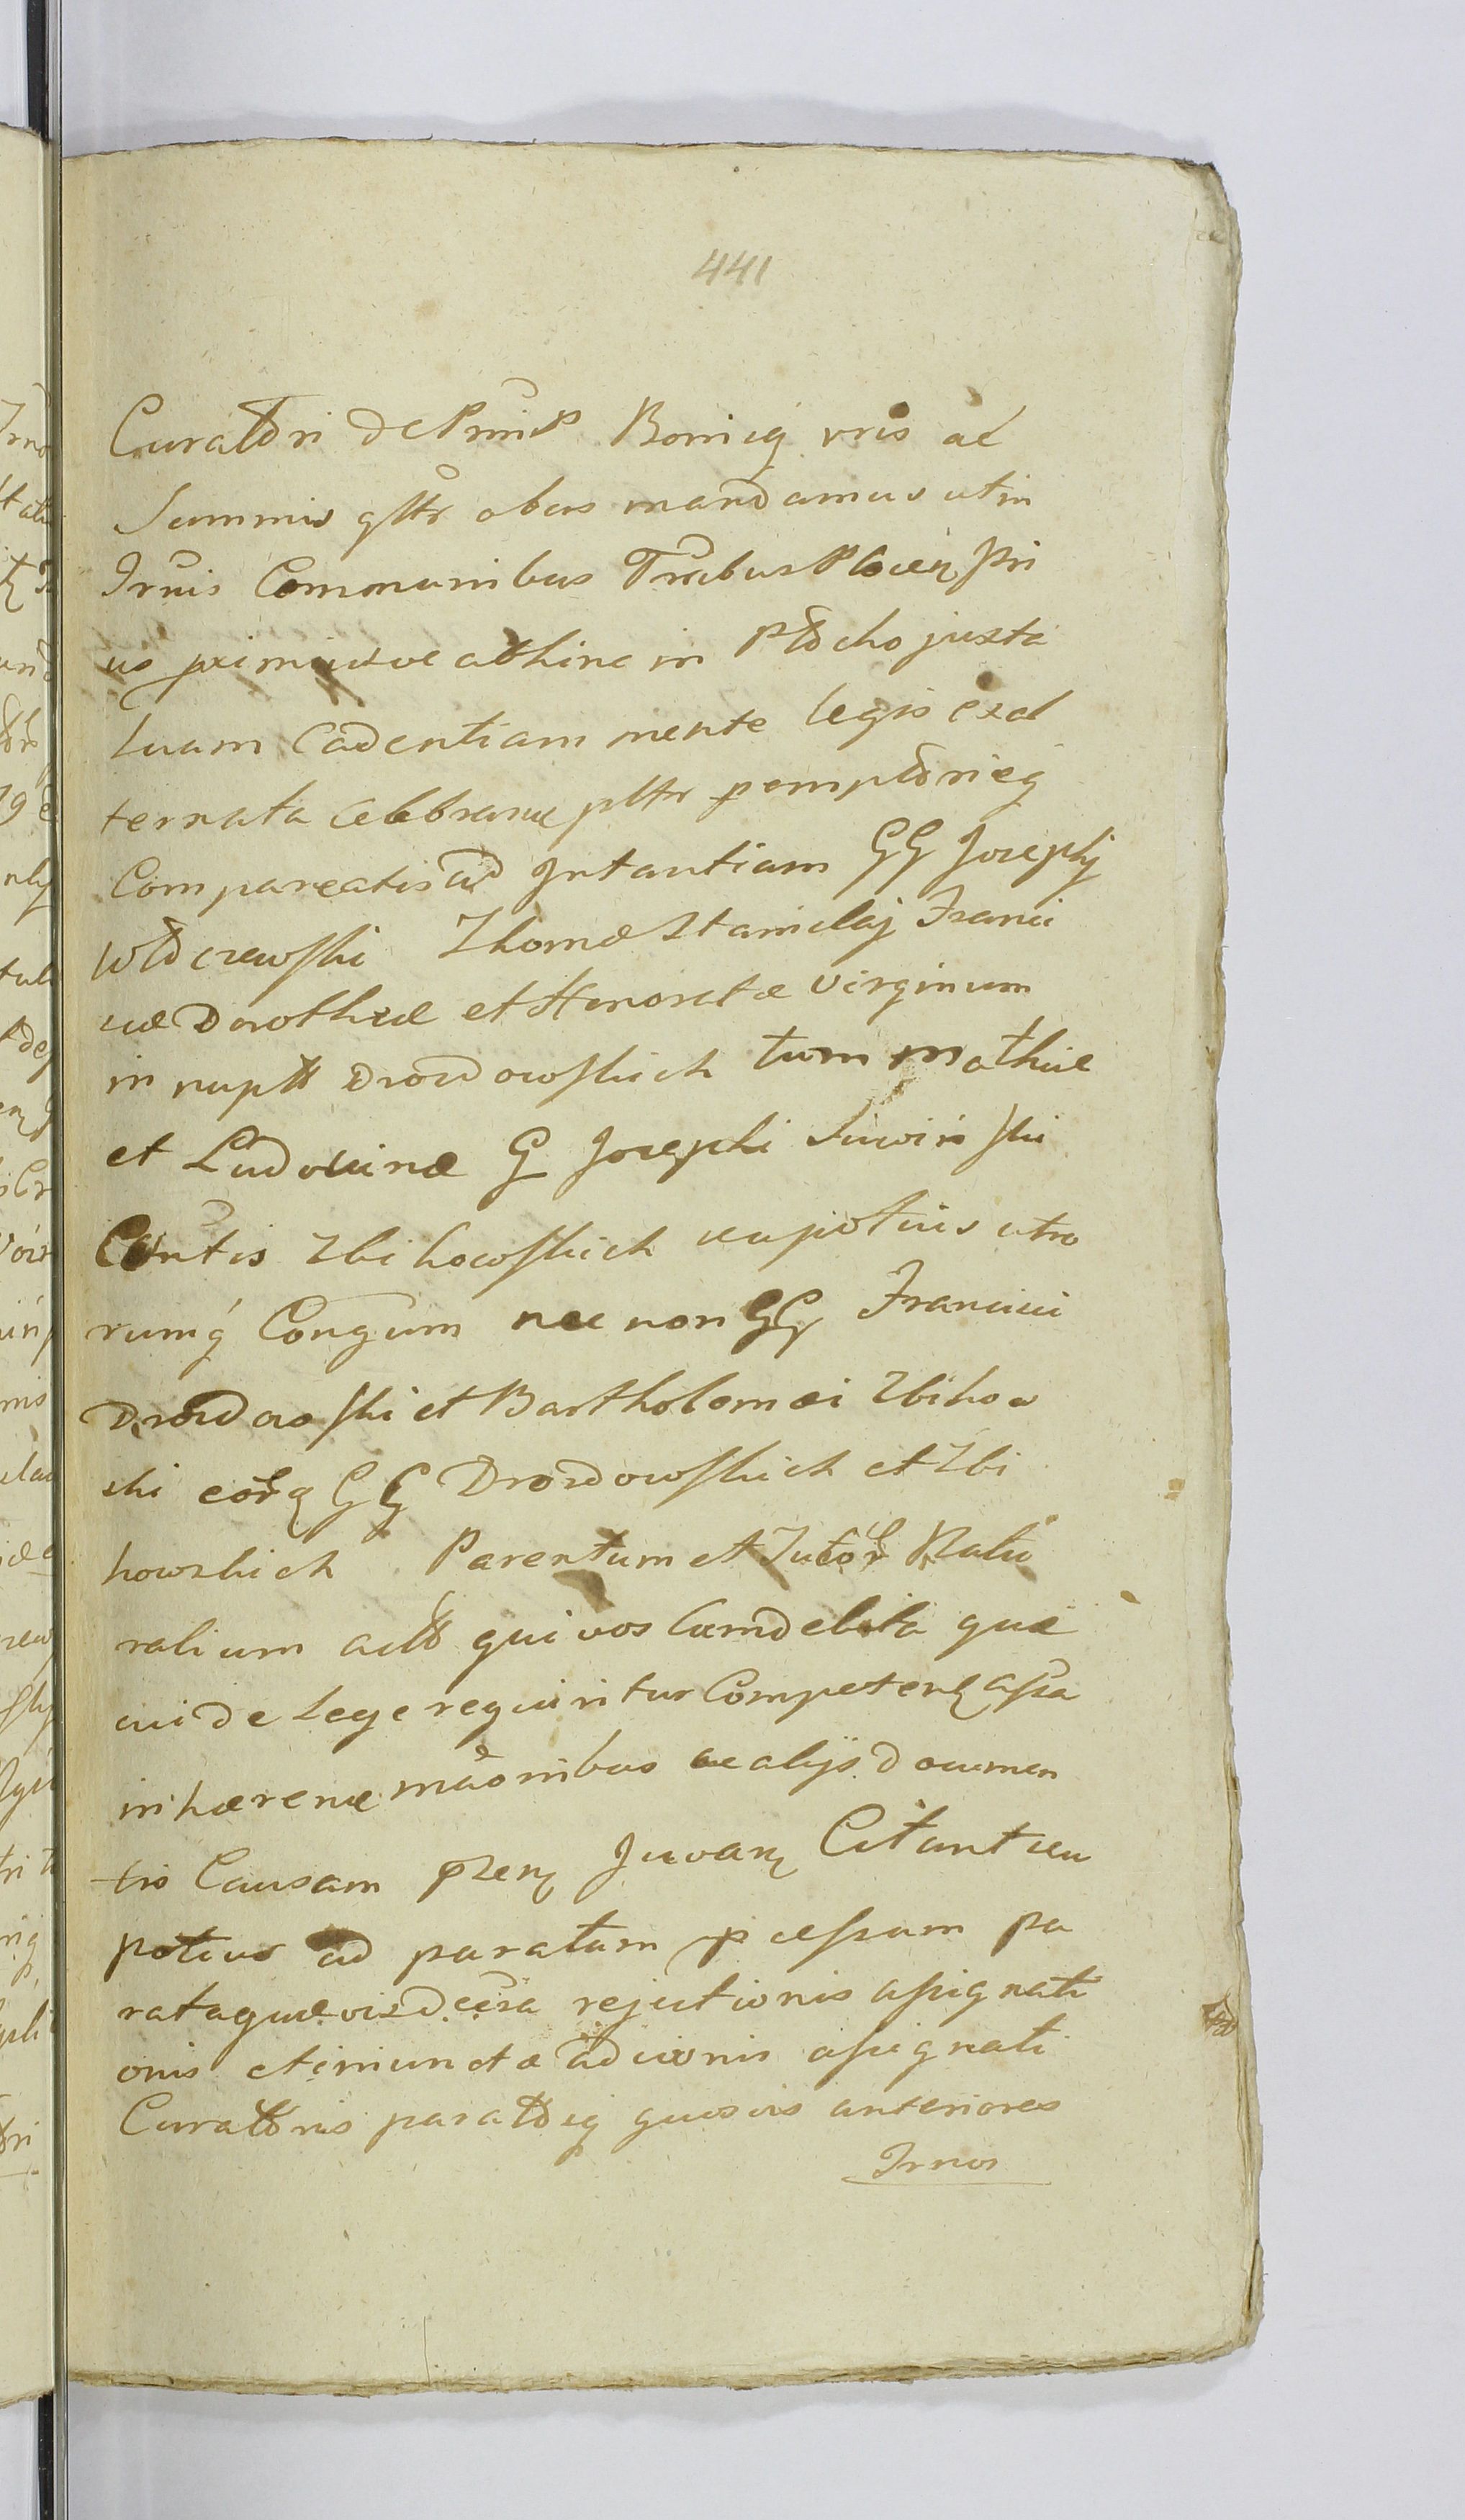 441
Curatori de Prm̃s Boniq vris ac
Summis gltr obus mandamus ut in
Irnis Communibus Trbus Plocen Pri
us primitive athinc in Plocko juxta
suam Cadentiam mente legis ex al
ternata celebran pltr pemptorieq
Compareatis ad Intantiam GG Josephj
Włoczewski Thomæ Stanislaj Franci
cæ Dorotheæ et Honoratæ Virginum
in nuptt Drozdowskich tum Mathiæ
et Ludovinæ G Josephi Suwinski
Contis Zbikowskich seu potius utro
rumq Congum nec non GG Francisci
Drozdowski et Bartholomæi Zbikow
ski eorq GG Drozdowskich et Zbi
kowskich Parentum et Tutor Natu
ralium actt qui vos Cum debita quæ
cui de Lege requiritur Competen assa
inhæren mãonibus ac alijs documen
tis Causam pzen Juvan Citant seu
potius ad paratum pcessum pa
rataque vizdecera rejectionis assignati
onis et iniunctæ adcionis assignati
Curatoris paratoq quosvis anteriores
Irnos